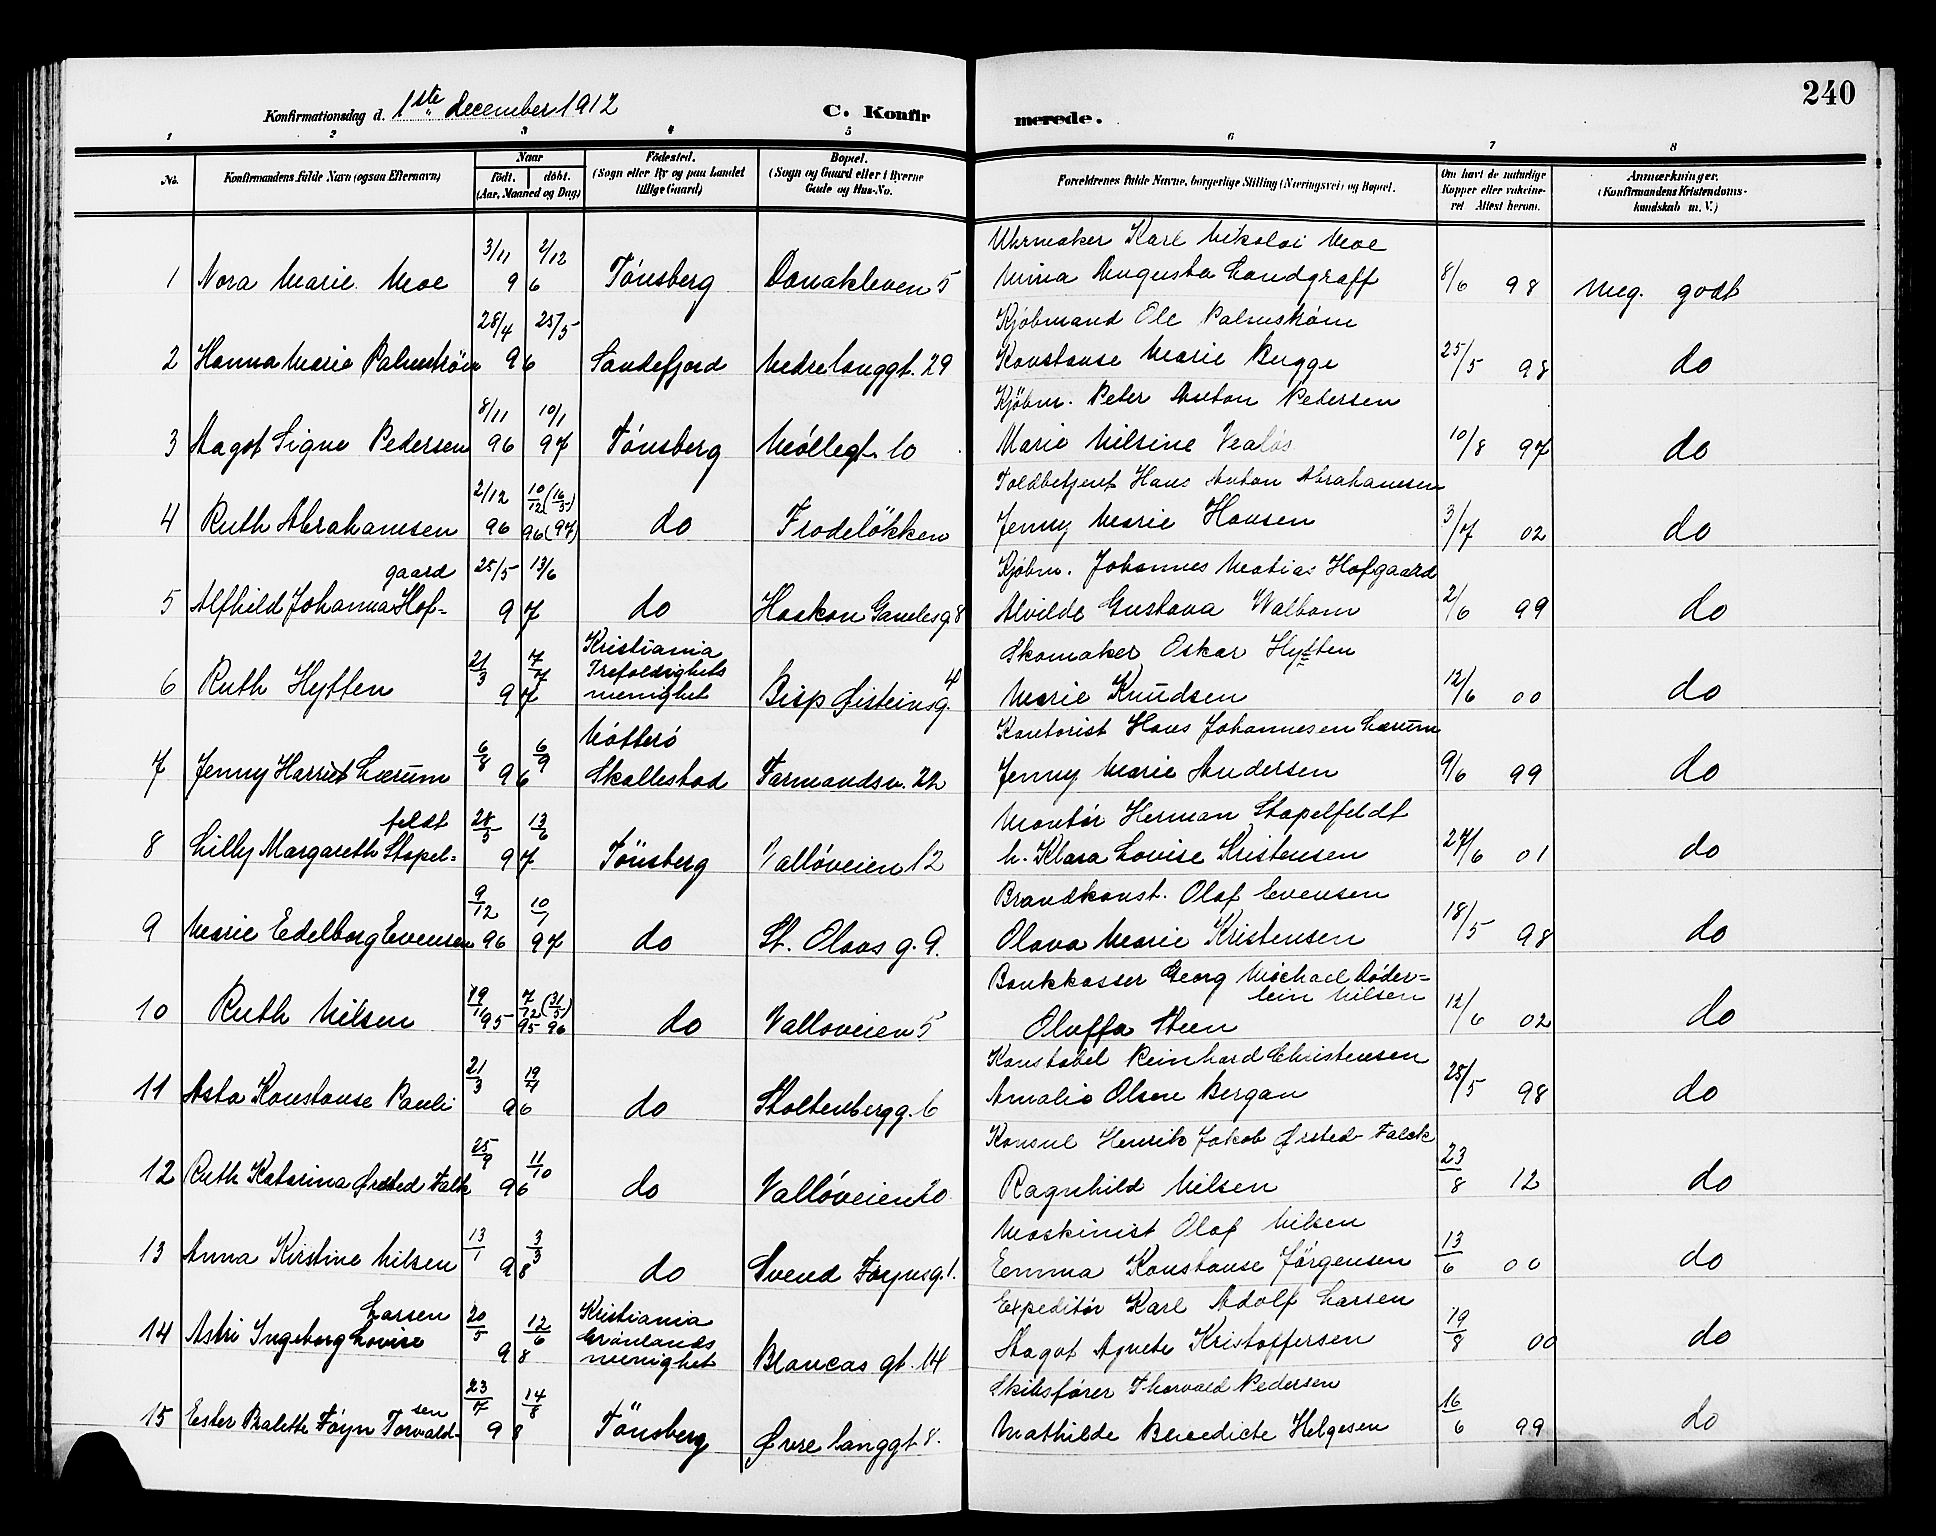 240
Konfirmationsdag d. 1ste december 1912 C. Konfirmerede.
1 2 3 4 5 6 7 8
No. Konfirmandens fulde Navn (ogsaa Efternavn) Naar født. døbt. (Aar, Maaned og Dag) Födested. (Sogn eller By og paa Landet tillige Gaard) Bopæl. (Sogn og Gaard eller i Byerne Gade og Hus-No. Forældrenes fulde Navne, borgerlige Stilling (Næringsvei) og Bopæl. Om havt de naturlige Kopper eller vakcineret Attest herom. Anmærkninger. (Konfirmandens Kristendomskundskab m. V.)
3/11 2/12 Uhrmaker Karl Nikolai Moe
1 Nora Marie Moe 96 Tönsberg Danakleven 5 Mina Augusta Landgraff 8/6 98 Meg. godt
28/4 25/5 Kjöbmand Ole Palmström
2 Hanna Marie Palmström 96 Sandefjord Nedre langgt. 29 Konstanse Marie Bugge 25/5 98 do
8/11 10/1 Kjöbm. Peter Anton Pedersen
3 Aagot Signe Pedersen 96 97 Tönsberg Möllegt. 10 Marie Nilsine 10/8 97 do
2/12 10/12 (16/3) Toldbetjent Hans Anton Abrahamsen
4 Ruth Abrahamsen 96 96 (97) do Frodelökken Jenny Marie Hansen 3/7 02 do
gaard 25/5 13/6 Kjöbm. Johannes Matias Hofgaard
5 Alfhild Johanna Hof- 97 do Haakon Gamlesg. 8 Alvilde Gustava Walbom 2/6 99 do
Kristiania Skomaker Oskar Hytten
21/3 7/7 Trefoldigheds
6 Ruth Hytten 97 menighet Bisp Øisteinsg. 4 Marie Knudsen 12/6 00 do
Nötterö Kontorist Hans Johannesen Lærum
7 Jenny Harriet Lærum 6/8 6/9 96 Skallestad Farmandsv. 22 Jenny Marie Andersen 9/6 99 do
feldt 28/5 13/6 Montör Herman Stapelfeldt
8 Lilly Margareth Stapel- 97 Tönsberg Vallöveien 12 h. Klara Lovise Kristensen 27/6 01 do
9/12 10/1 Brandkonst. Olaf Evensen
9 Marie Edelborg Evensen 96 97 do St. Olavs g. 9. Olava Marie Kristensen 18/5 98 do
19/11 7/12 (31/5) Bankkasser Georg Michael Döder-
lein Nilsen
10 Ruth Nilsen 95 95 96 do Valloveien 5 Oluffa Steen 12/6 02 do
21/3 19/4 Konstabel Reinhard Christensen
11 Asta Konstanse Pauli 96 do Stoltenbergg. 6 Amalie Olsen Bergan 25/5 98 do
25/9 11/10 Konsul Henrik Jakob Ørsted Falck
12 Ruth Katarina Ørsted Falk 96 do Vallöveien 20 Ragnhild Nilsen 23/8 12 do
13/1 3/3 Maskinist Olaf Nilsen
13 Anna Kirstine Nilsen 98 do Svend Föynsg. 1. Emma Konstanse Jörgensen 13/6 00 do
Larsen 20/5 12/6 Kristiania Expeditör Karl Adolf Larsen
Grönlands
14 Astri Ingeborg Lovise 98 menighet Blancas gt. 14 Aagot Agnete Kristoffersen 19/8 00 do
sen 23/7 14/8 Skibsförer Thorvald Pedersen
15 Ester Föyn Torvald- 98 Tönsberg Øvre langgt 8. Mathilde Benedicte Helgesen 16/6 99 do